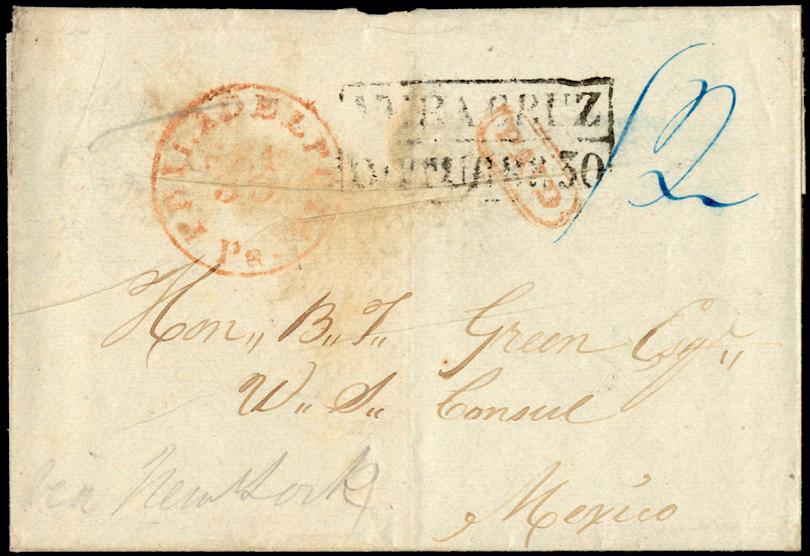 PHILADELPHIA
30
Pa
VERA CRUZ
OCTUBRE 30
PAID
12
Hon,, B,, T,, Green Esqr,,
U,, S,, Consul
Mexico
via New York